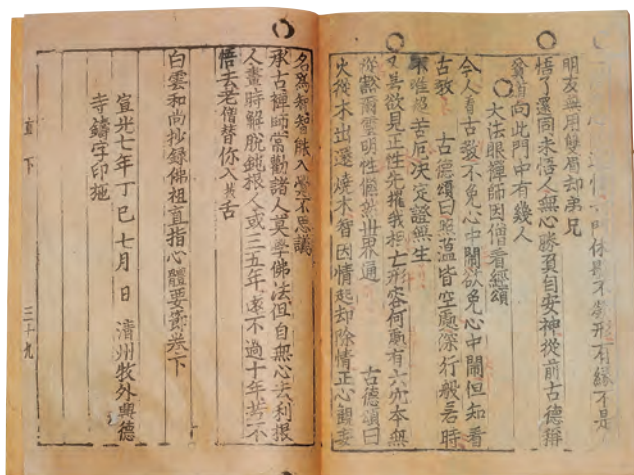 時休影不勞形有緣不是
明友無用雙眉却弟兄
悟了還同未悟人無心勝負自安神從前古德稱
貧道向此門中有幾人
大法眼禪師因僧看經頌
今人看古教不免心中鬧欲免心中鬧但知看
古教 古德頌曰照蘊皆空處深行般若時
唯超苦厄決定證無生
又若欲見正性先摧我相亡形容何處有六本無
從豁爾靈明性翛然世界通 古德頌曰
火從木出還燒木智因情起却除情正心觀妄
名爲智智能入覺不思議
承古禪師常勸諸人莫學佛法但自無心去利根
人晝時解脫鈍根人或三五年遠不過十年若不
悟去老僧替你入拔舌
白雲和尚抄錄佛祖直指心體要節卷下
宣光七年丁巳七月 日 淸州牧外興德
寺鑄字印施
直下 三十九